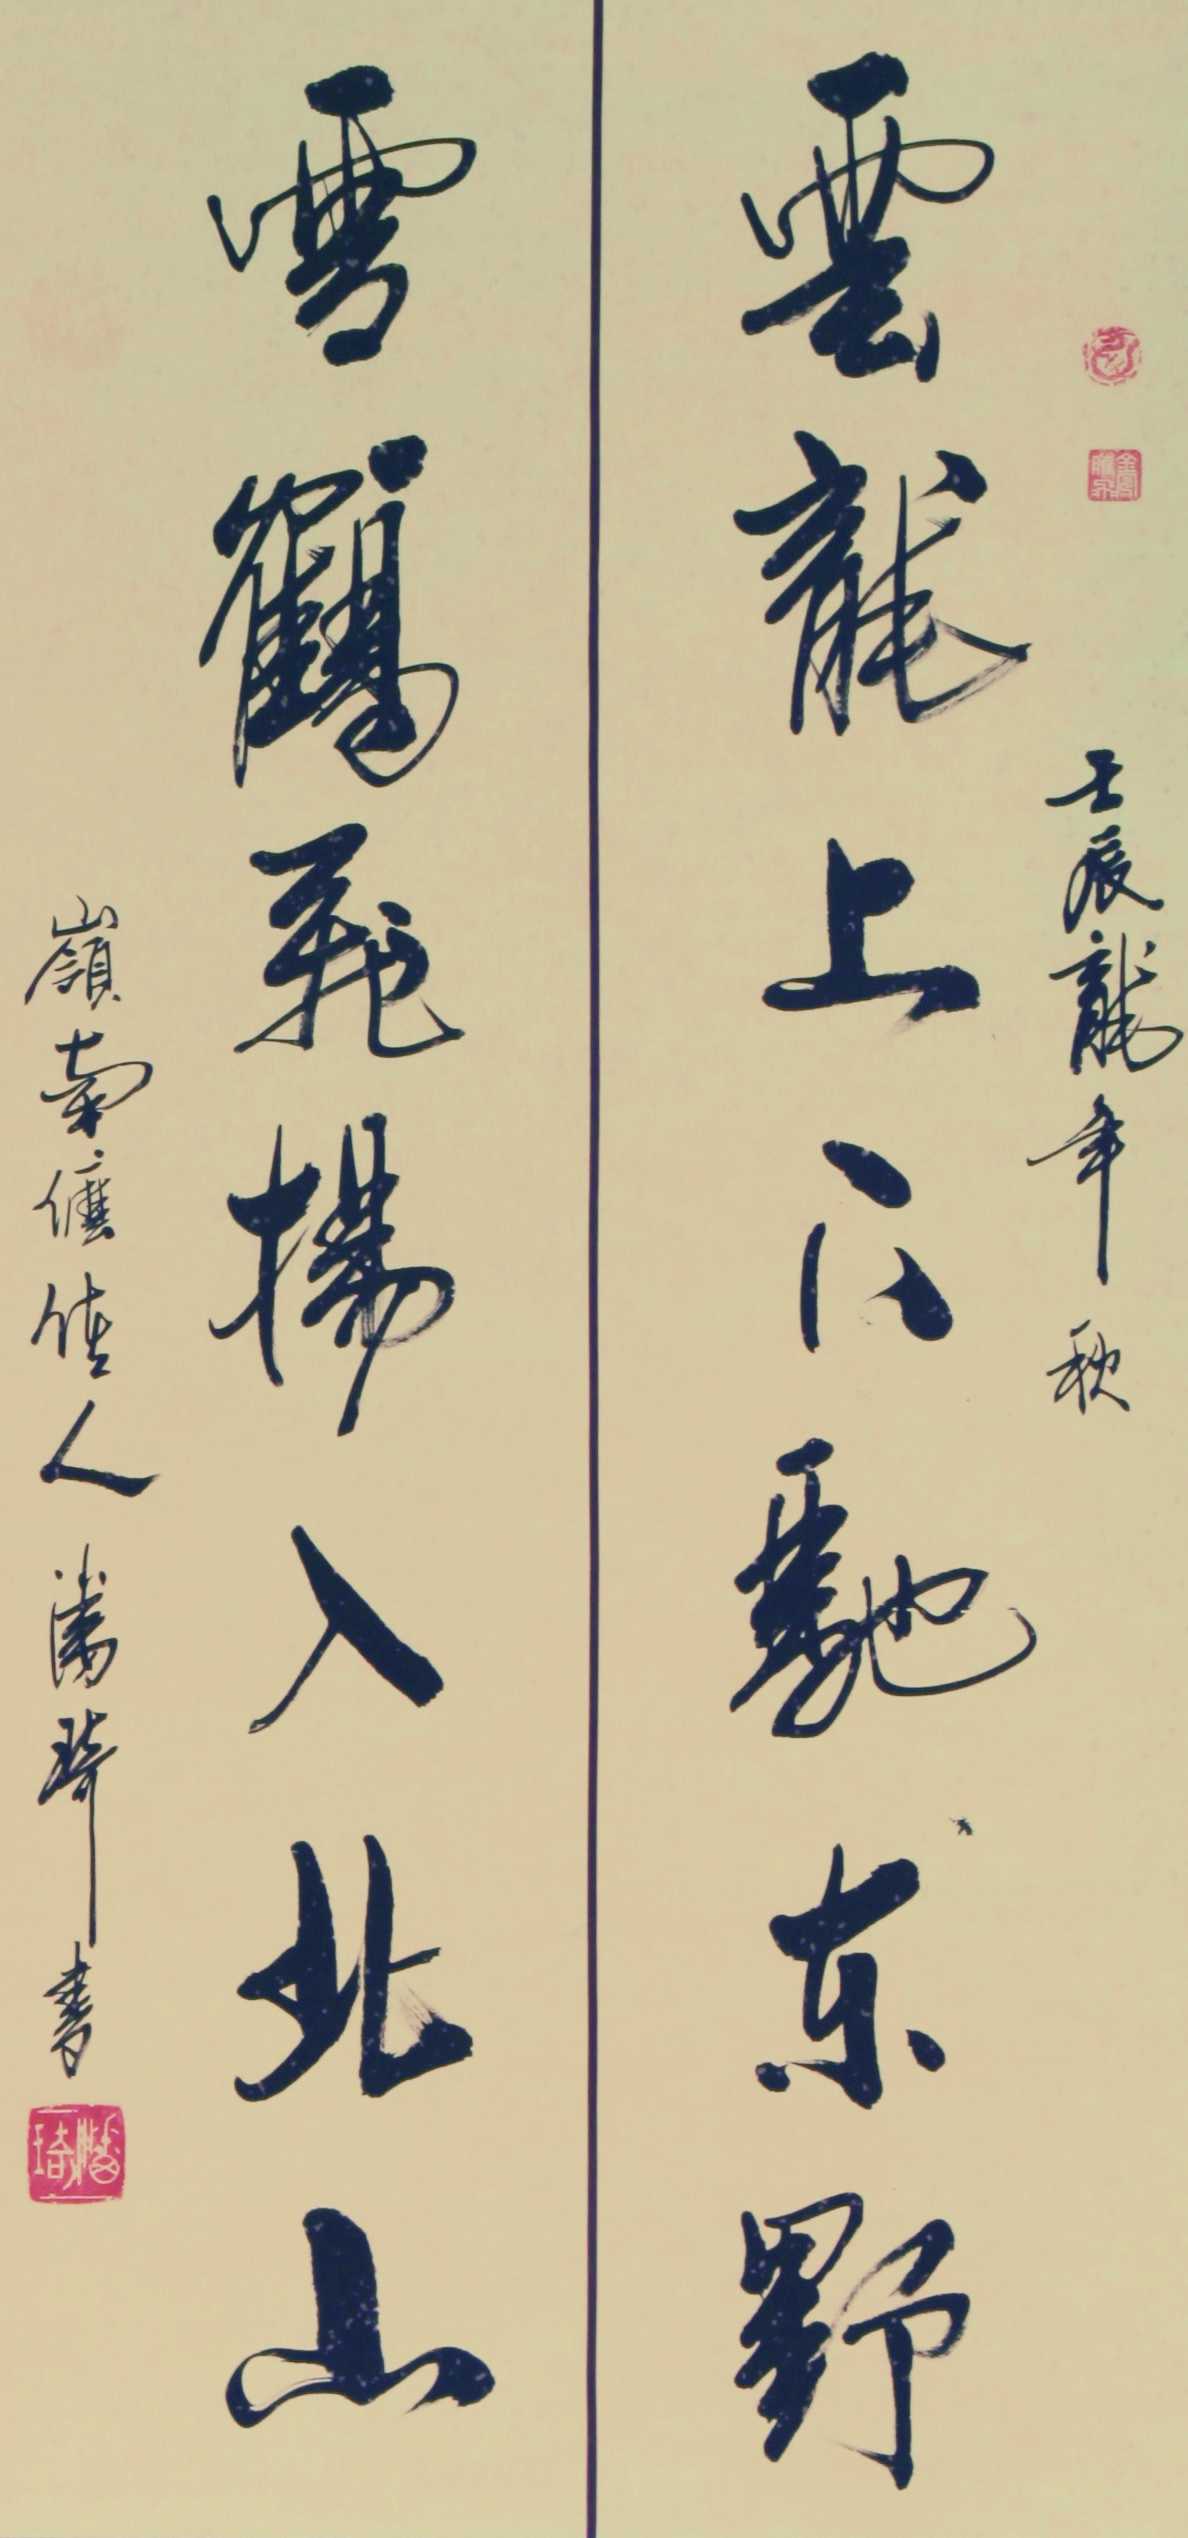 壬辰龍年秋
雲龍上下馳东野
雪鶴飛揚入北山
嶺南儒佳人潘琦書
潘琦